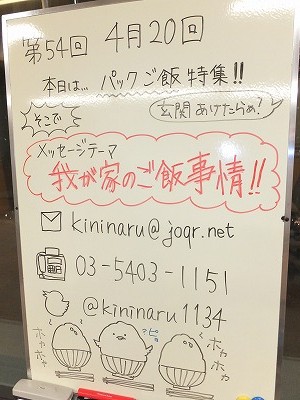 第54回 4月20回
本日は… パックご飯 特集!!
そこで
玄関あけたらぁ?
メッセージテーマ
我が家のご飯事情!!
kininaru@joqr.net
03-5403-1151
@kininaru1134
ホカホカ
ピョ
ホカホカ